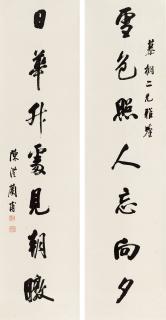 慕桐二兄雅鑒
雪色照人忘向夕
日華升處見朝暾
陳澧蘭甫